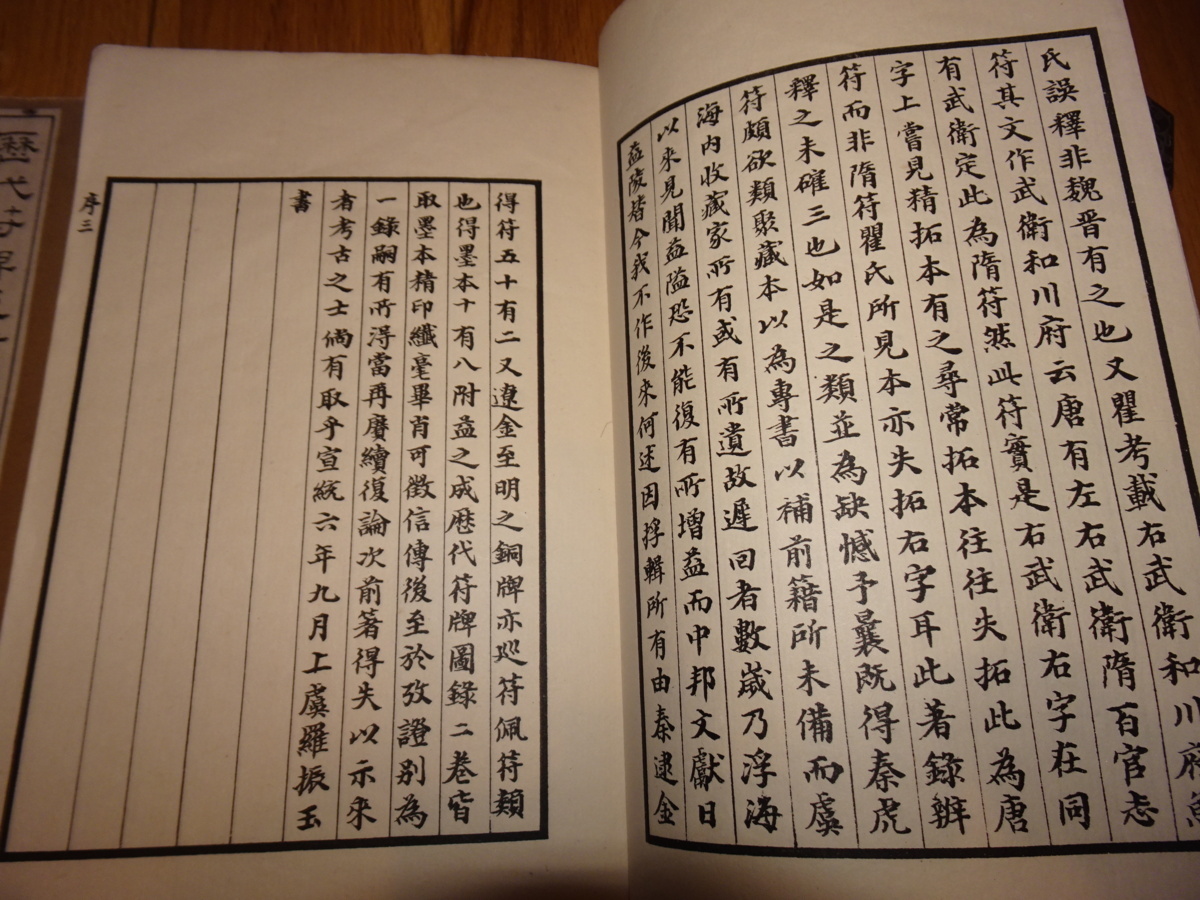 氏誤釋非魏晋有之也又瞿考載右武衛和川府魚
符其文作武衛和川府云唐有左右武衛隋百官志
有武衛定此為隋符然此符實是右武衛右字在同
字上嘗見精拓本有之尋常拓本往往失拓此為唐
符而非隋符瞿氏所見本亦失拓右字耳此著錄辨
釋之未確三也如是之類並為缺憾予曩既得秦虎
符頗欲類聚藏本以為專書以補前籍所未備而虞
海内收藏家所有或有所遺故遲回者數歲乃浮海
以來見聞益隘恐不能復有所增益而中邦文獻日
益陵替今我不作後來何述因捊輯所有由秦逮金
得符五十有二又遼金至明之銅牌亦兆符佩符類
也得墨本十有八附益之成歷代符牌圖錄二卷皆
取墨本精印纖毫畢肖可徵信傳後至於攷證别為
一錄嗣有所得當再賡續復論次前著得失以示來
者考古之士倘有取乎宣統六年九月上虞羅振玉
書
序三